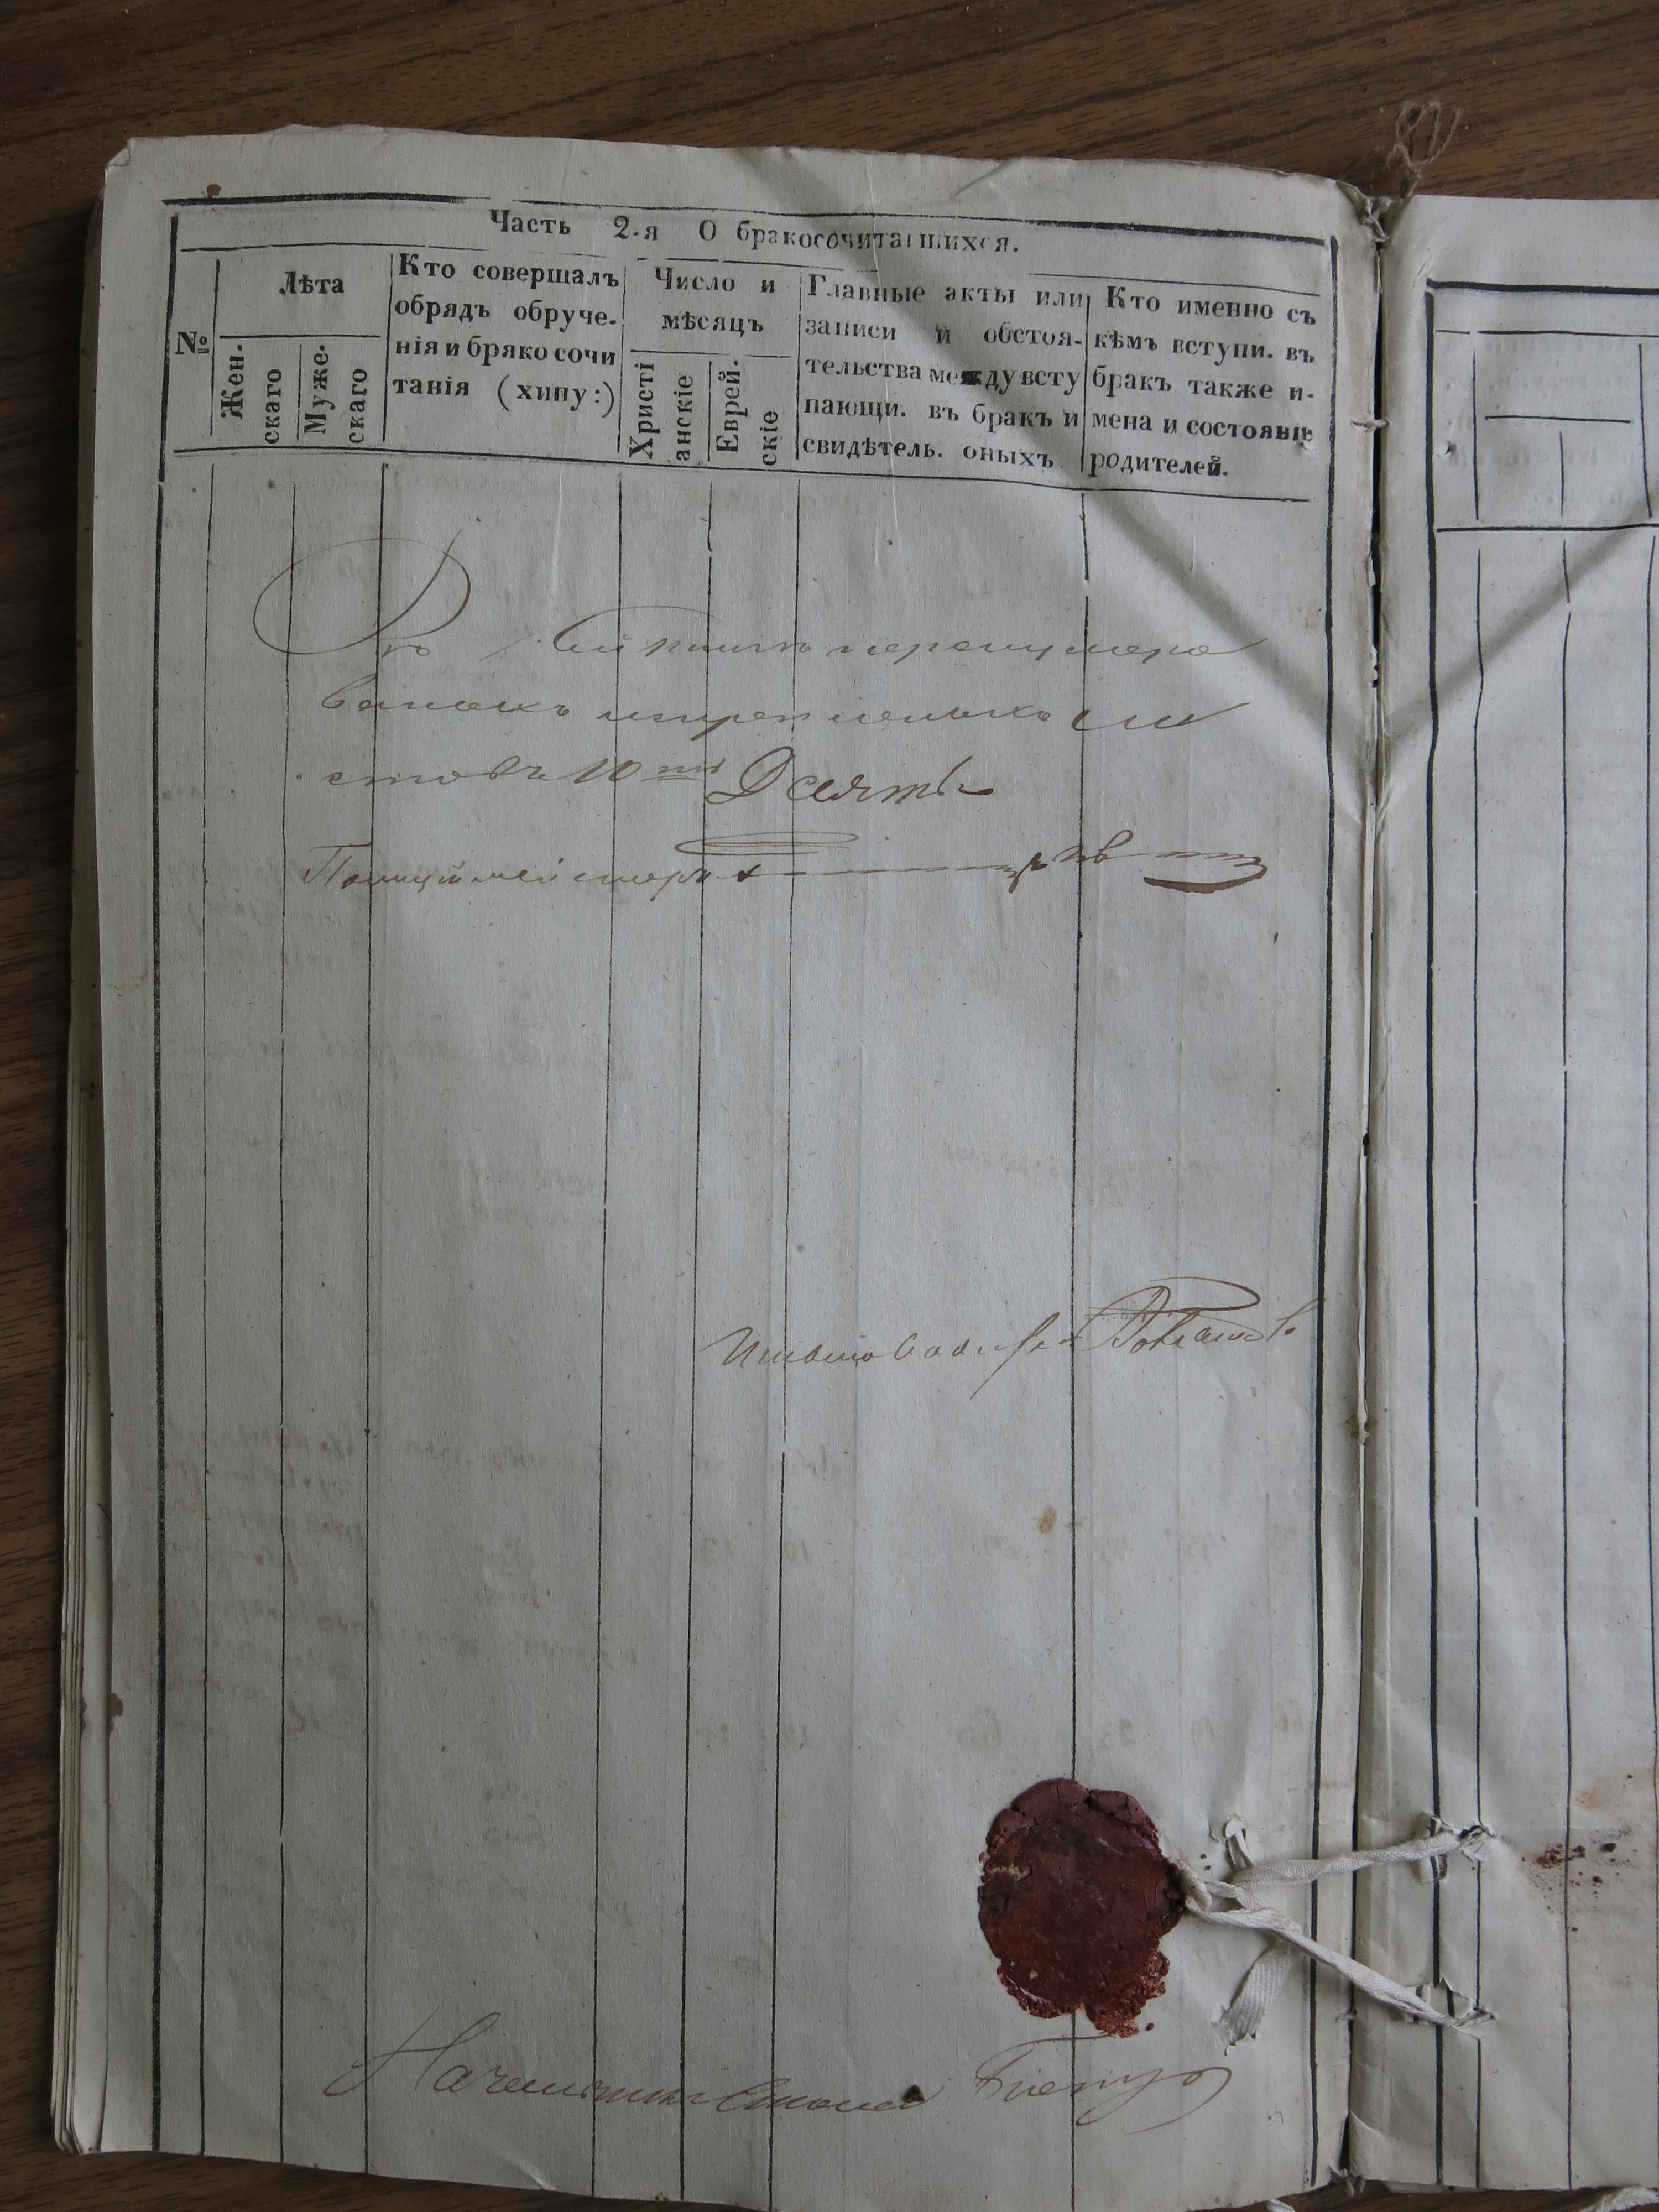 Часть 2-я О бракосочитавшихся.
№
Лѣта
Жен-
скаго
Муже-
скаго
Кто совершалъ
обрядъ обруче-
нія и бряко сочи
танія (хипу:)
Число и
мѣсяцъ
Христі
анскіе
Еврей-
скіе
Главные акты или
записи и обстоя-
тельства между всту
пающи. въ бракъ и
свидѣтель. оныхъ
Кто именно съ
кѣмъ вступи. въ
бракъ также и-
мена и состояніе
родителей.
Въ сей книгѣ перенумеро
ванныхъ и скрепленныхъ ли
стовъ 10ть Десять
Полицыймейстеръ
Начальникъ Стола